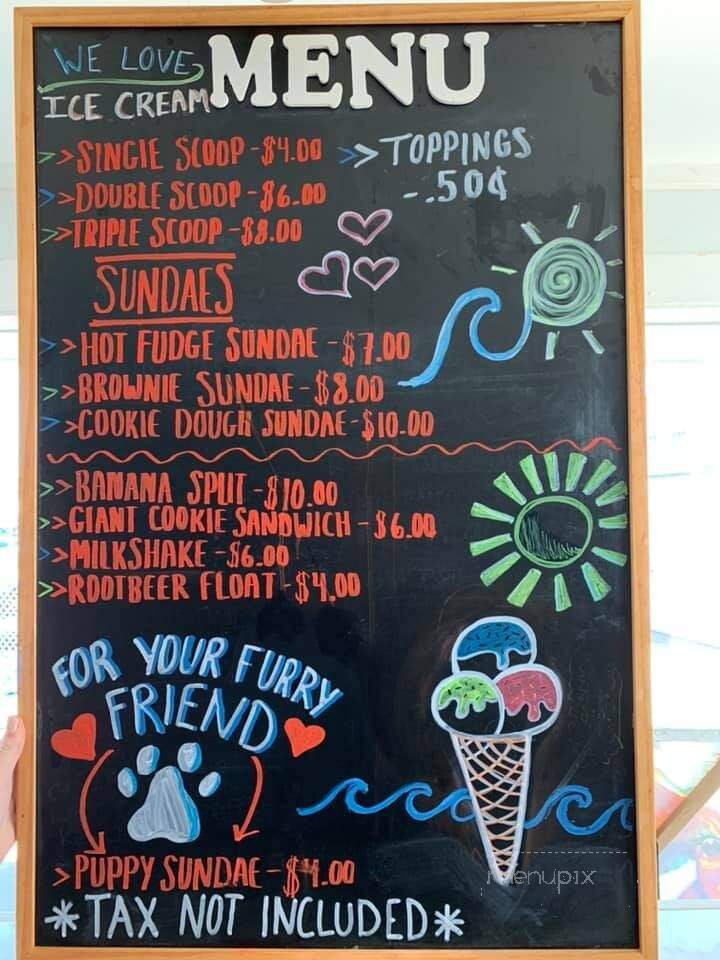 WE LOVE
ICE CREAM
MENU
>>SINGLE SCOOP -$4.00
>>TOPPINGS
-.50¢
>>DOUBLE SCOOP -$6.00
>>TRIPLE SCOOP -$8.00
SUNDAES
>>HOT FUDGE SUNDAE -$7.00
>>BROWNIE SUNDAE -$8.00
>>COOKIE DOUGH SUNDAE-$10.00
>>BANANA SPLIT -$10.00
>>GIANT COOKIE SANDWICH -$6.00
>>MILKSHAKE -$6.00
>>ROOTBEER FLOAT -$4.00
FOR YOUR FURRY
FRIEND
>PUPPY SUNDAE -$4.00
*TAX NOT INCLUDED*
menupix